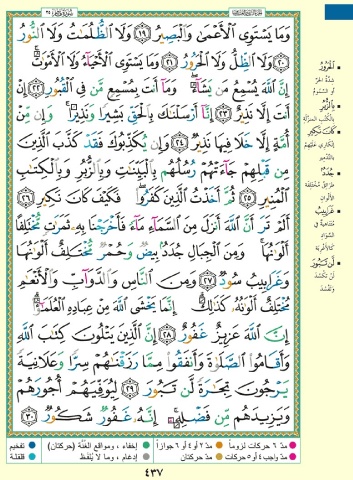 وَمَا يَسْتَوِي الْأَعْمَىٰ وَالْبَصِيرُ ١٩ وَلَا الظُّلُمَاتُ وَلَا النُّورُ
٢٠ وَلَا الظِّلُّ وَلَا الْحَرُورُ ٢١ وَمَا يَسْتَوِي الْأَحْيَاءُ وَلَا الْأَمْوَاتُ ۚ
إِنَّ اللَّهَ يُسْمِعُ مَن يَشَاءُ ۖ وَمَا أَنتَ بِمُسْمِعٍ مَّن فِي الْقُبُورِ ٢٢ إِنْ
أَنتَ إِلَّا نَذِيرٌ ٢٣ إِنَّا أَرْسَلْنَاكَ بِالْحَقِّ بَشِيرًا وَنَذِيرًا ۚ وَإِن مِّنْ
أُمَّةٍ إِلَّا خَلَا فِيهَا نَذِيرٌ ٢٤ وَإِن يُكَذِّبُوكَ فَقَدْ كَذَّبَ الَّذِينَ
مِن قَبْلِهِمْ جَاءَتْهُمْ رُسُلُهُم بِالْبَيِّنَاتِ وَبِالزُّبُرِ وَبِالْكِتَابِ
الْمُنِيرِ ٢٥ ثُمَّ أَخَذْتُ الَّذِينَ كَفَرُوا ۖ فَكَيْفَ كَانَ نَكِيرِ ٢٦
أَلَمْ تَرَ أَنَّ اللَّهَ أَنزَلَ مِنَ السَّمَاءِ مَاءً فَأَخْرَجْنَا بِهِ ثَمَرَاتٍ مُّخْتَلِفًا
أَلْوَانُهَا ۚ وَمِنَ الْجِبَالِ جُدَدٌ بِيضٌ وَحُمْرٌ مُّخْتَلِفٌ أَلْوَانُهَا
وَغَرَابِيبُ سُودٌ ٢٧ وَمِنَ النَّاسِ وَالدَّوَابِّ وَالْأَنْعَامِ
مُخْتَلِفٌ أَلْوَانُهُ كَذَٰلِكَ ۗ إِنَّمَا يَخْشَى اللَّهَ مِنْ عِبَادِهِ الْعُلَمَاءُ ۗ
إِنَّ اللَّهَ عَزِيزٌ غَفُورٌ ٢٨ إِنَّ الَّذِينَ يَتْلُونَ كِتَابَ اللَّهِ
وَأَقَامُوا الصَّلَاةَ وَأَنفَقُوا مِمَّا رَزَقْنَاهُمْ سِرًّا وَعَلَانِيَةً
يَرْجُونَ تِجَارَةً لَّن تَبُورَ ٢٩ لِيُوَفِّيَهُمْ أُجُورَهُمْ
وَيَزِيدَهُم مِّن فَضْلِهِ ۚ إِنَّهُ غَفُورٌ شَكُورٌ ٣٠
الْحَرُورُ
شدة الحر
أو السموم
بِالزُّبُرِ
بالكتب المنزلة
كَانَ نَكِيرِ
إنكاري عليهم
بالتدمير
جُدَدٌ
طرائق مختلفة
الألوان
غَرَابِيبُ
متناهية في
السواد
كالأغربة
لَّن تَبُورَ
لن تكسد
وتفسد
مدّ ٦ حركات لزوماً
مدّ ٢ أو ٤ أو ٦ جوازاً
إخفاء، ومواقع الغُنَّة (حركتان)
تفخيم
مدّ واجب ٤ أو ٥ حركات
مدّ حركتان
إدغام، وما لا يُلفَظ
قلقلة
٤٣٧